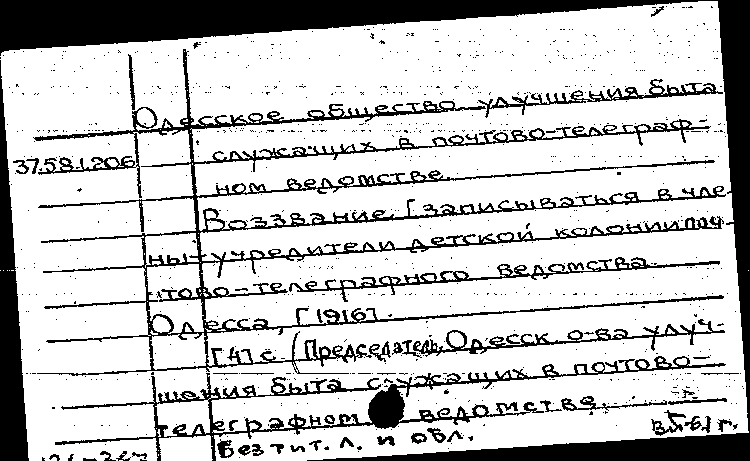 Одесское общество улучшения быта
37.58.1.206
служащих в почтово-телеграф-
ном ведомстве.
Воззвание. [записываться в чле-
ны-учредители детской колонии поч-
тово-телеграфного ведомства.
Одесса, [1916].
[4] с. (Председатель Одесск. о-ва улуч-
шения быта служащих в почтово-
телеграфном ведомстве.
Без тит. л. и обл.